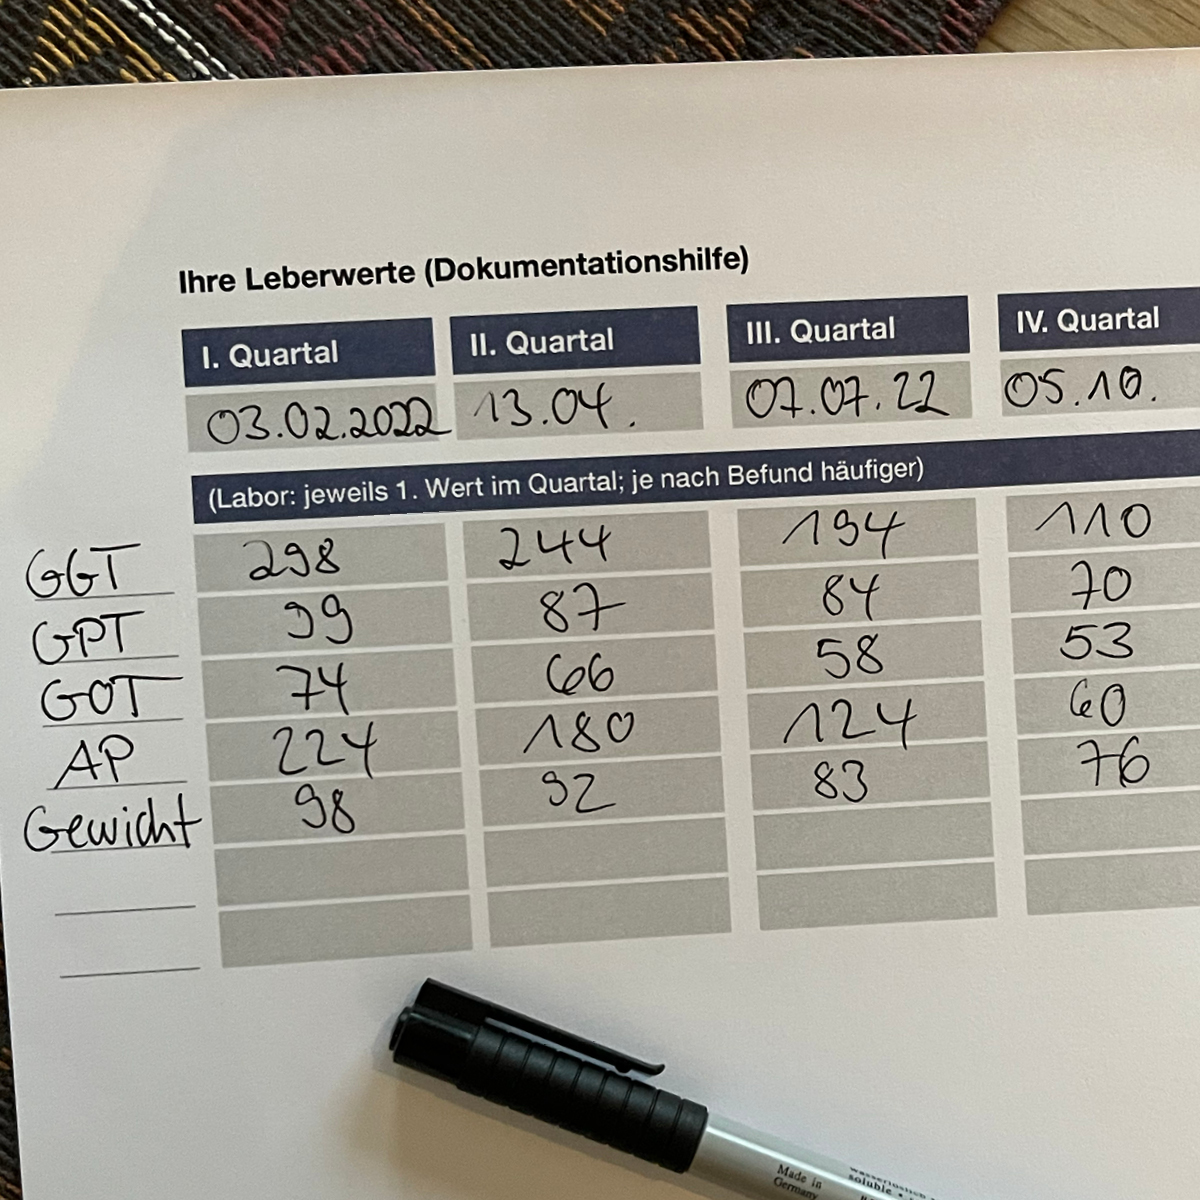 Ihre Leberwerte (Dokumentationshilfe)
I. Quartal II. Quartal III. Quartal IV. Quartal
03.02.2022 13.04. 07.07.22 05.10.
(Labor: jeweils 1. Wert im Quartal; je nach Befund häufiger)
GGT 298 244 194 110
GPT 99 87 84 70
GOT 74 66 58 53
AP 224 180 124 60
Gewicht 98 92 83 76
Made in
Germany
wasserlöslich
soluble •